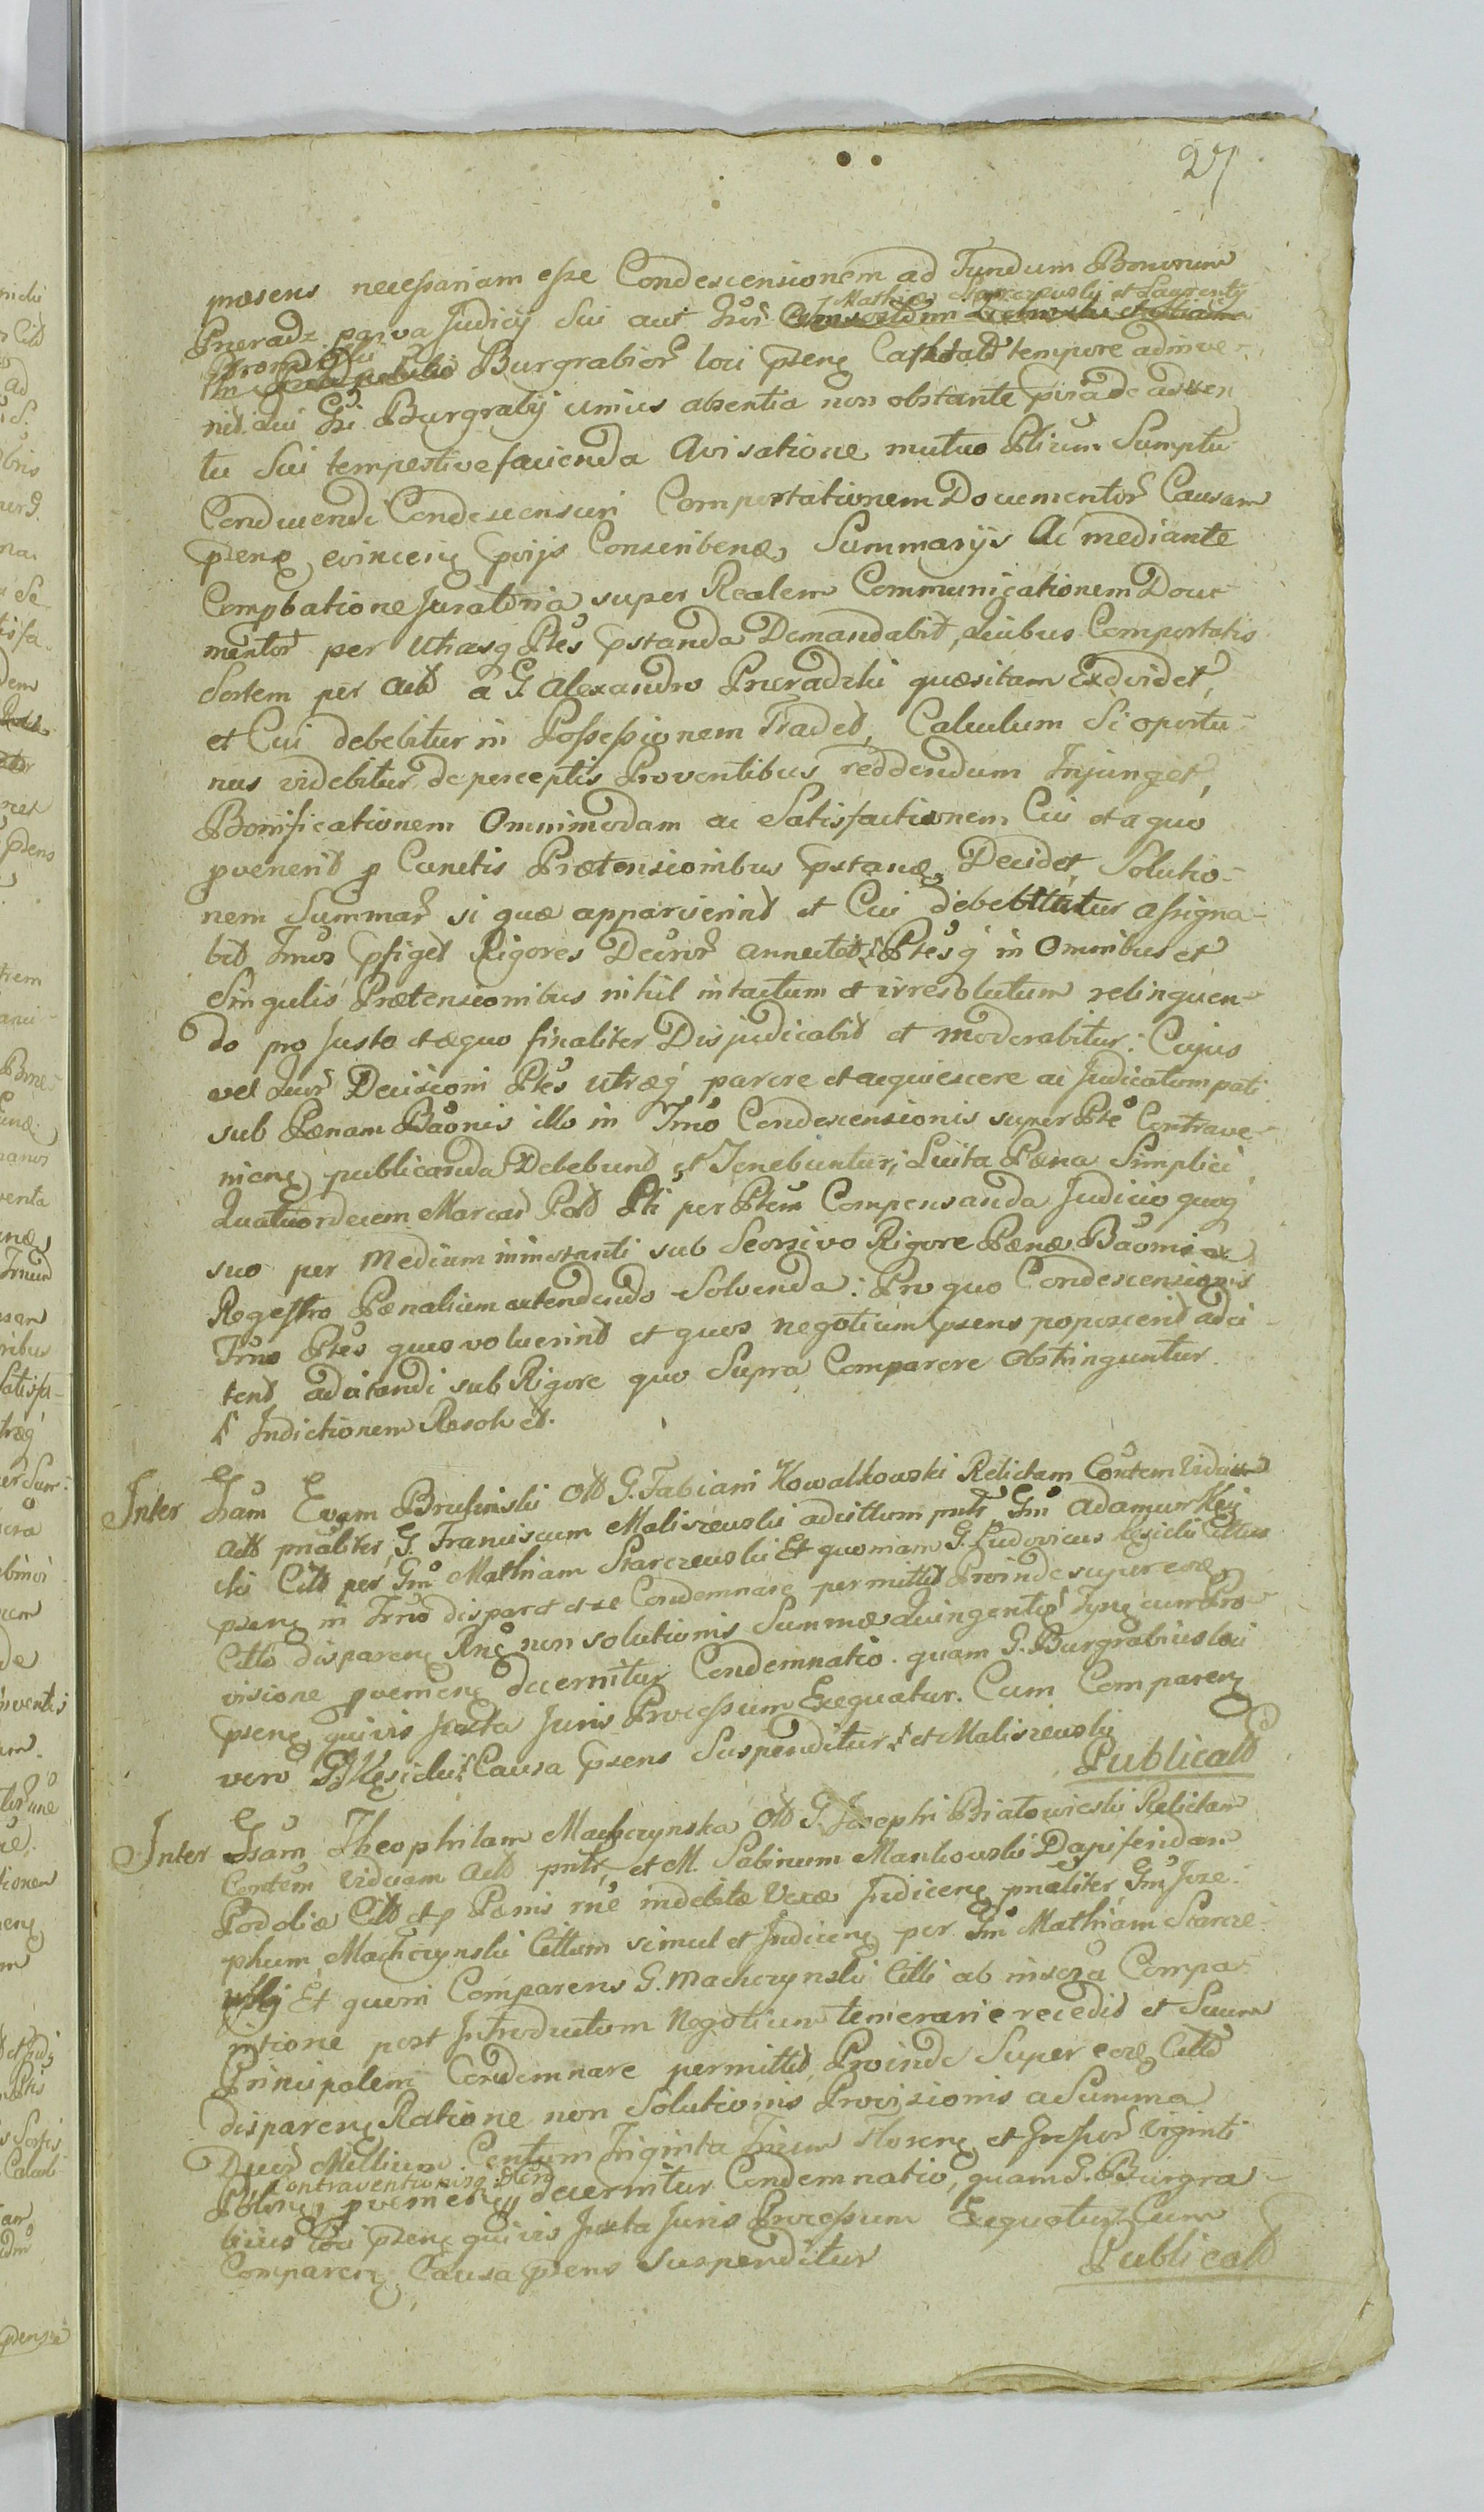 27
præsens necessariam esse Condescensionem ad Fundum Bonorum
Mathiæ Starczewski et Laurentij
Prieradz parva Judicij sui aut
Burgrabior loci psens tempore adinve-
nid. aui Gsi Burgrabij unius absentia non obstante de adven
tu sui tempestive facienda Avisatione mutuo Ptium Sumptu
Conducendi Condescensuri Comportationem Documentor Causam
psens evincens Conscribenæ, Summarijs Ac mediante
Compbatione Juratoria super Realem Communicationem Docu-
mentor per Utrasq Ptes pstanda Demandabit, Quibus Comportatis
Sortem per Act a G. Alexandro Prieradzki quæsitam Exdividet,
et Cui debebitur in Possessionem Tradet, Calculum Si oportu-
nus videbitur de perceptis Proventibus reddendum Injunget,
Bonificationem Omnimodam ac Satisfactionem Cui et a quo
pvenerit p Cunctis Prætensionibus pstanæ, Decidet, Solutio-
nem Summar si quæ apparuerint et Cui debebitur assigna-
bit Trnos pfiget Rigores Decrior annectet Ptes q in Omnibus et
Singulis Prætensionibus nihil intactum et irresolutum relinquen-
do pro Justo et æquo finaliter Disjudicabit et moderabitur: Cujus
vel quor Decisioni Ptes utræq parere et acquiescere ac Judicatum pati
sub Pænam Baonis illo in Trno Condescensionis super Pte Contrave-
niens publicanda Debebunt et Tenebuntur, Luita Pæna Simplici
Quatuordecem Marcar Pold Pti per Ptem Compensanda Judicio quoq
suo per Medium ministranti sub Seorsivo Rigore Pænæ Baonis ex
Regestro Pænalium extendendo Solvenda: Pro quo Condescensionis
Trno Ptes quos voluerint et quos negotium psens poposcerit adci-
tent adcitandi sub Rigore quo Supra Comparere Obstringuntur
Indictionem Resolvet.
Inter Gsam Evam Brulinski Old G. Fabiani Kowalkowski Relictam Contem Viduam
Act pnaliter, G. Franciscum Maliszewski adcittum pntr, Gm Adamum Kęsi
cki Citt per Gm Mathiam Starczewski Et quoniam G. Ludovicus Kęsicki Cittus
psens in Trno disparet et se Condemnare permittit Proinde super eoæ
Citto disparens Rne non solutionis Summæ Quingentor Tynf cum Pro-
visione pveniens decernitur Condemnatio. quam G. Burgrabius loci
psens quivis Juxta Juris Processum Exequatur. Cum Comparens
vero G. Kęsicki Causa psens Suspenditur et Maliszewski
Publicatt
Inter Gsam Theophilam Machczynska Old G. Josephi Białowieski Relictam
Contem Viduam Act pntr, et M. Sabinum Mańkowski Dapiferidam
Podoliæ Citt et p Pænis rne indebitæ Vexæ Indicens pnaliter Gm Jose-
phum Machczynski Cittum simul et Indicens per Gm Mathiam Starcze-
wski Et quoni Comparens G. Machczynski Citti ab inscpta Compa-
ritione post Introductum Negotium temerarie recedit et Suum
Principalem Condemnare permittit, Proinde Super eoæ Citto
disparens Ratione non Solutionis Provisionis a Summa
Duor Millium Centum Triginta Trium Floreng et Grossor Viginti
Contraventionisq Seng
Polony pveniens, decernitur Condemnatio, quam G. Burgra-
bius loci psens quivis Juxta Juris Processum Exequatur. Cum
Comparens Causa psens Suspenditur
Publicatt